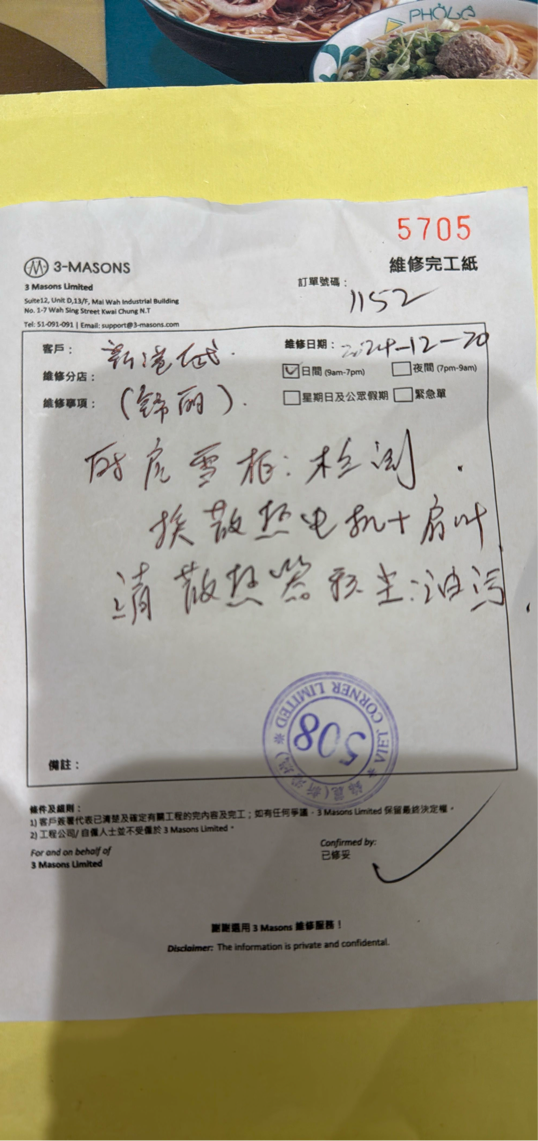 PHỞLÊ
5705
3-MASONS
維修完工紙
3 Masons Limited
訂單號碼：
1152
Suite12, Unit D,13/F, Mai Wah Industrial Building
No. 1-7 Wah Sing Street Kwai Chung N.T
Tel: 51-091-091 | Email: support@3-masons.com
客戶：
新港城
維修日期：2024-12-20
維修分店：
日間 (9am-7pm) 夜間 (7pm-9am)
維修事項：
(錦丽).
星期日及公眾假期 緊急單
厨房雪柜：检测.
换散热电机+扇叶
清散热器积尘：油污.
VIET CORNER LIMITED
508
備註：
條件及細則：
1) 客戶簽署代表已清楚及確定有關工程的完內容及完工；如有任何爭議，3 Masons Limited 保留最終決定權。
2) 工程公司/ 自僱人士並不受僱於 3 Masons Limited。
For and on behalf of
3 Masons Limited
Confirmed by:
已修妥
謝謝選用 3 Masons 維修服務！
Disclaimer: The information is private and confidential.